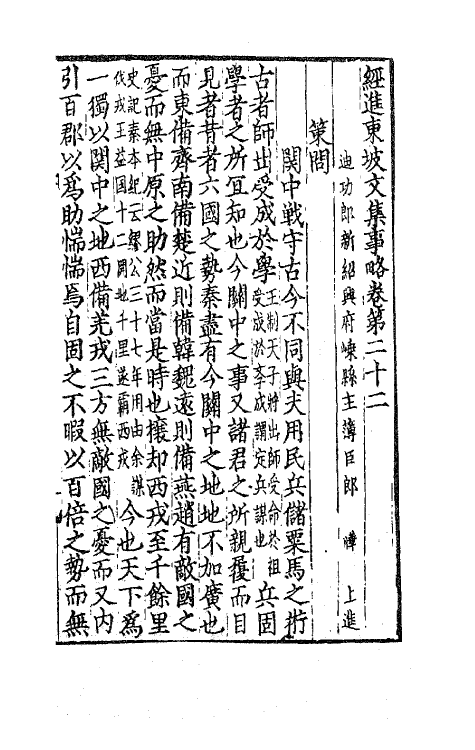 經進東坡文集事略卷第二十二
迪功郎新紹興府嵊縣主簿臣郎 曄 上進
策問
關中戰守古今不同與夫用民兵儲粟馬之術
古者師出受成於學王制天子將出師受命於祖受成於學成謂定兵謀也兵固
學者之所宜知也今關中之事又諸君之所親履而目
見者昔者六國之勢秦盡有今關中之地地不加廣也
而東備齊南備楚近則備韓魏遠則備燕趙有敵國之
憂而無中原之助然而當是時也攘却西戎至千餘里
史記秦本紀云繆公三十七年用由余謀伐戎王益国十二開地千里遂霸西戎今也天下爲
一獨以関中之地西備羌戎三方無敵國之憂而又内
引百郡以爲助惴惴焉自固之不暇以百倍之勢而無